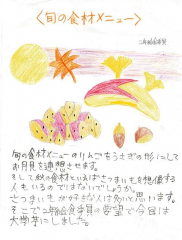 〈旬の食材メニュー〉
旬の食材メニューのりんごをうさぎの形にして
お月見を連想させます。
そして秋の食材といえばさつまいもを想像する
人もいるのではないでしょうか。
さつまいもが好きな人は多いと思います。
そこで二年給食委員の要望で今回は
大学芋にしました。